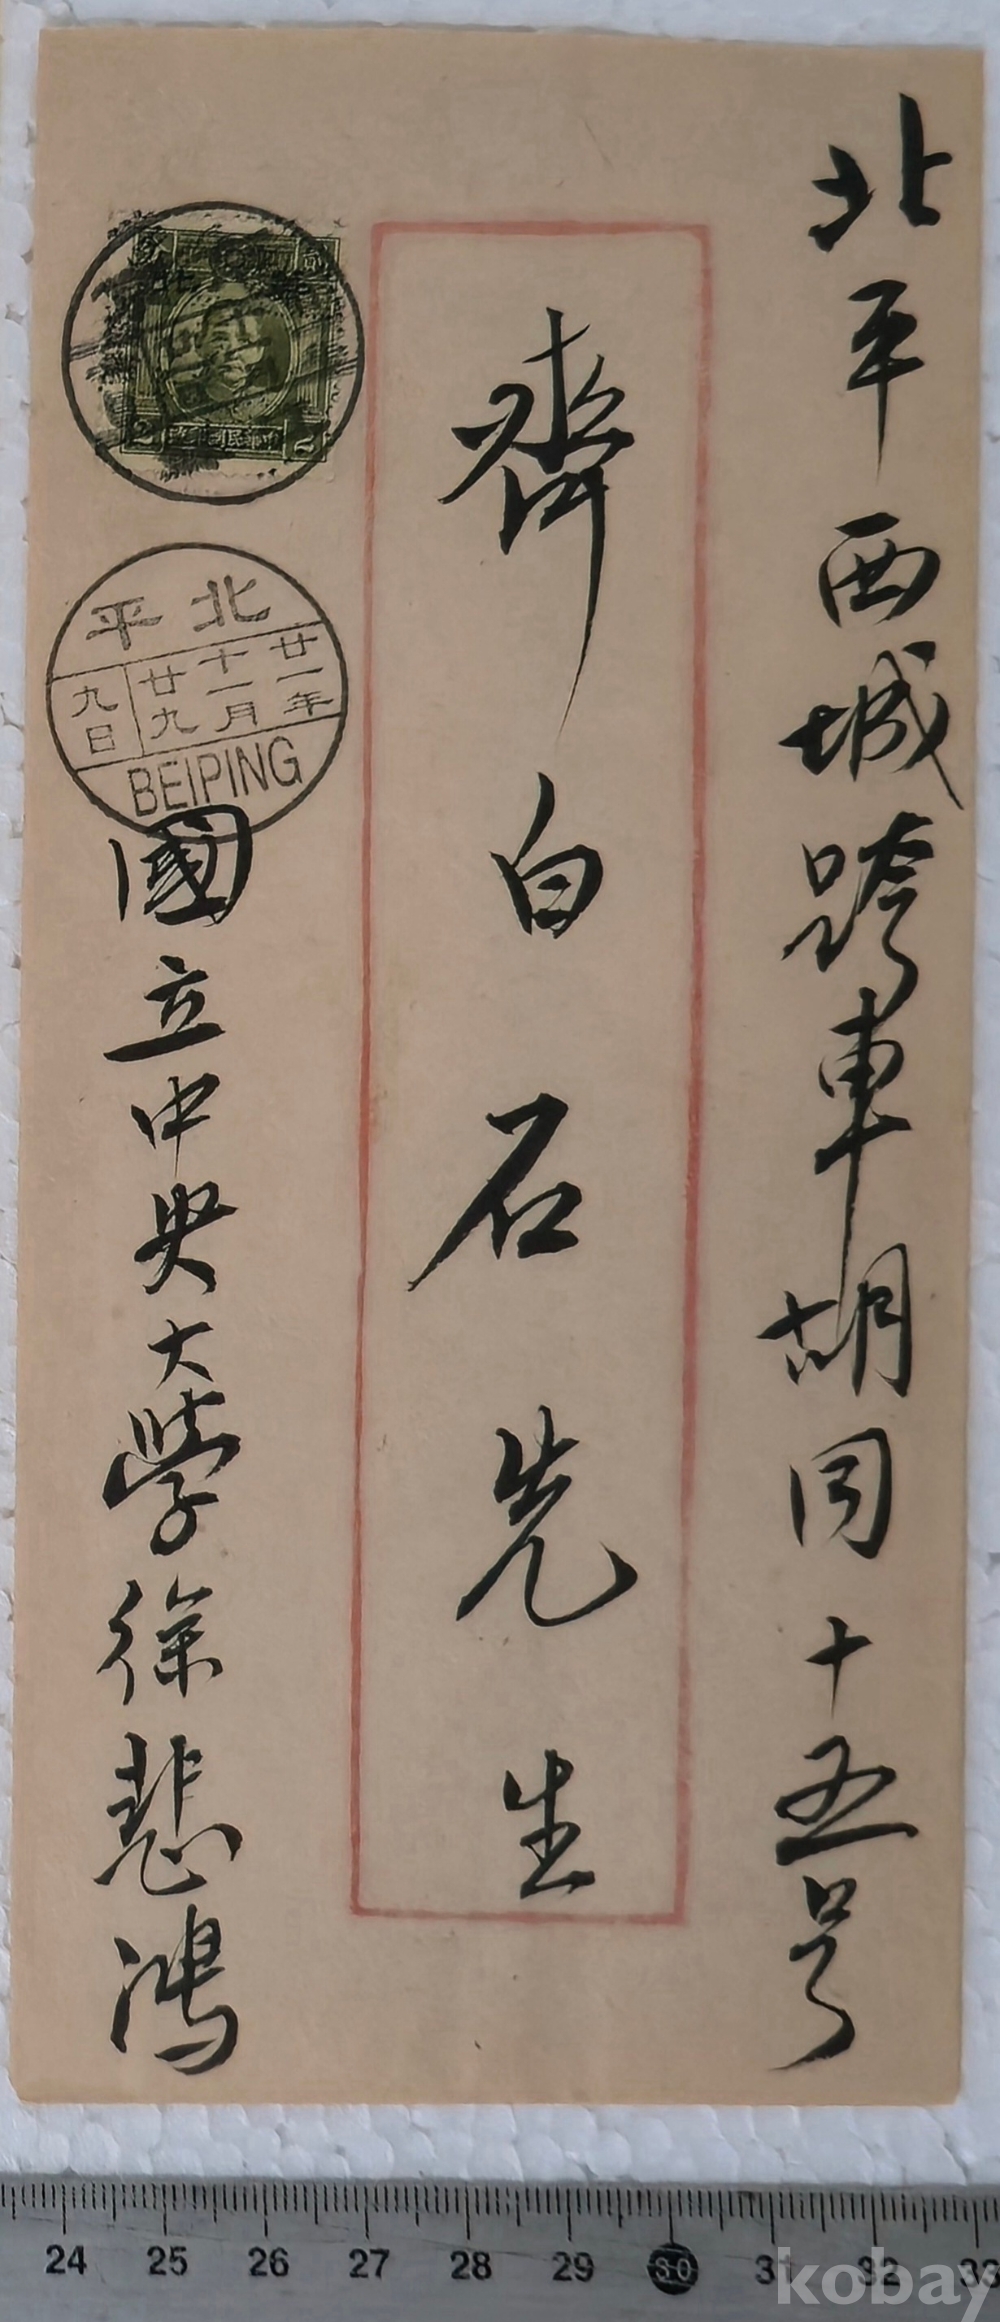 北平西城跨車胡同十五号
齊白石先生
2 中華民國郵政 2
北平
廿一年
十一月
廿九
九日
BEIPING
國立中央大學徐悲鴻
24 25 26 27 28 29 30 31 32 33
kobay